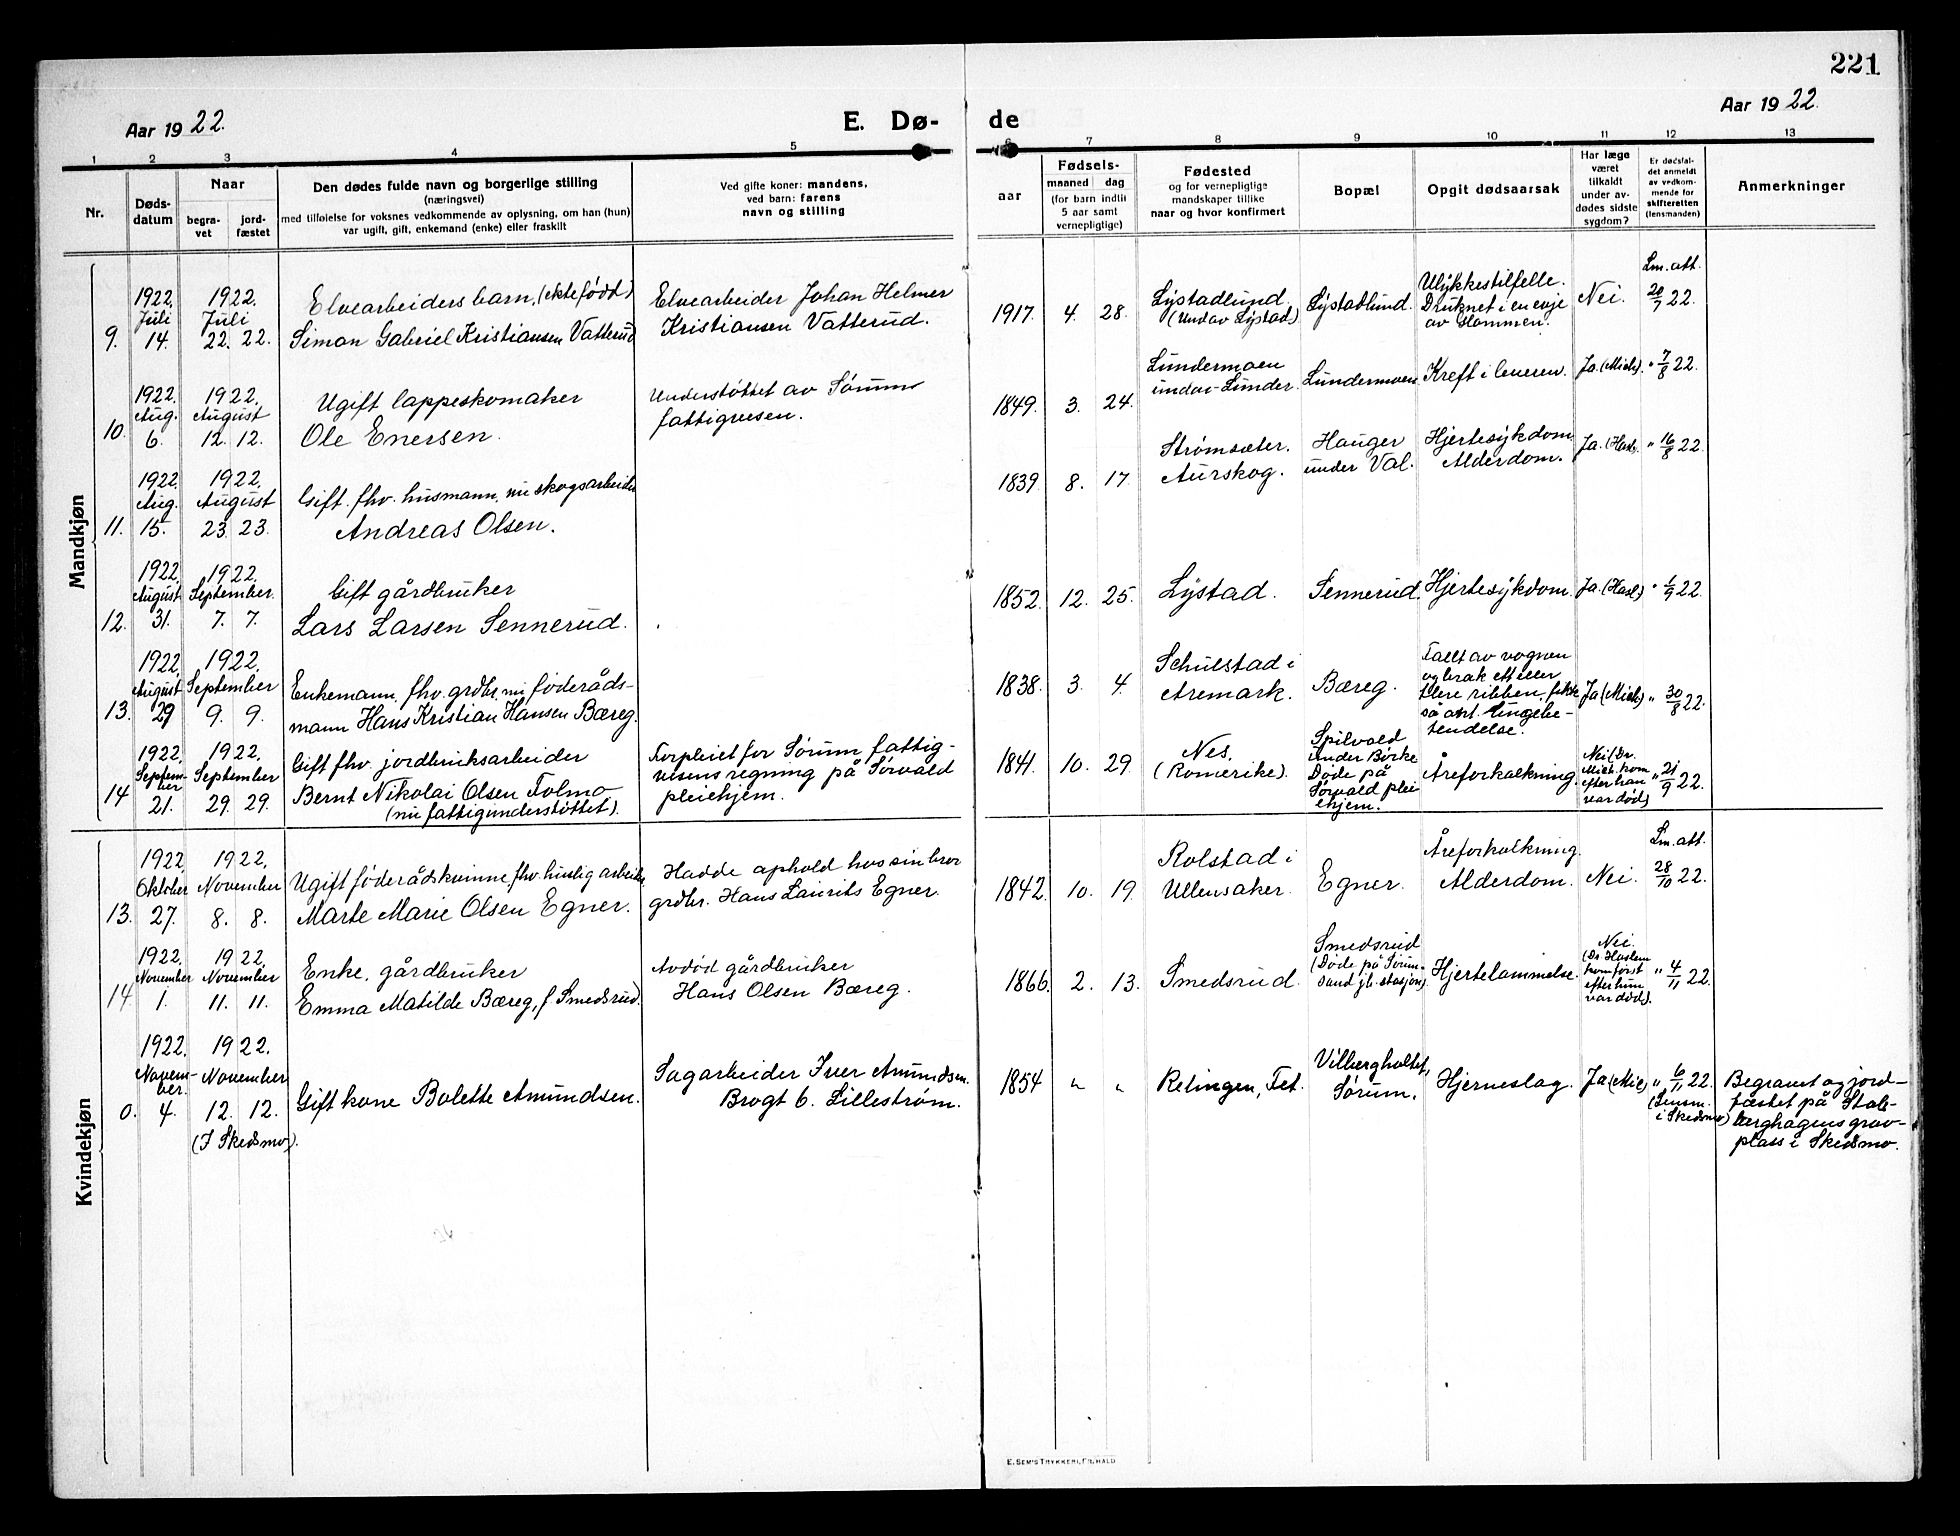 221
Aar 1922.
E. Dø-
de
Aar 1922.
1 2 3 4 5 6 7 8 9 10 11 12 13
Nr.
Døds-
datum
Naar
begra-
vet
jord-
fæstet
Den dødes fulde navn og borgerlige stilling
(næringsvei)
med tilføielse for voksnes vedkommende av oplysning, om han (hun)
var ugift, gift, enkemand (enke) eller fraskilt
Ved gifte koner: mandens,
ved barn: farens
navn og stilling
aar
Fødsels-
maaned dag
(for barn indtil
5 aar samt
vernepligtige)
Fødested
og for vernepligtige
mandskaper tillike
naar og hvor konfirmert
Bopæl
Opgit dødsaarsak
Har læge
været
tilkaldt
under av-
dødes sidste
sygdom?
Er dødsfal-
det anmeldt
av vedkom-
mende for
skifteretten
(lensmanden)
Anmerkninger
Mandkjøn
9.
1922.
Juli
14.
1922.
Juli
22. 22.
Elvearbeiders barn, (ektefødt)
Simon Gabriel Kristiansen Vatterud
Elvearbeider Johan Helmer
Kristiansen Vatterud.
1917. 4. 28.
Lystadlund.
(Under Lystad)
Lystadlund.
Ulykkestilfelle.
Druknet i en evje
av Glommen.
Nei.
Lm. att.
20/7 22.
10.
1922.
Aug.
6.
1922.
August
12. 12.
Ugift lappeskomaker
Ole Enersen.
Understøttet av Sørum
fattigvesen.
1849. 3. 24.
Lundermoen
under Lunder.
Lundermoen.
Kreft i leveren.
Ja (Mich).
" 7/8 22.
11.
1922.
Aug.
15.
1922.
August
23. 23.
Gift. fhv. husmann, nu skogsarbeider
Andreas Olsen.
1839. 8. 17.
Strømsæter.
Aurskog.
Hauger
under Val.
Hjertesykdom
Alderdom.
Ja. (Hasl).
" 16/8 22.
12.
1922.
August
31.
1922.
September.
7. 7.
Gift gårdbruker
Lars Larsen Sennerud.
1852. 12. 25.
Lystad.
Sennerud.
Hjertesykdom.
Ja. (Hasl)
" 1/9 22.
13.
1922.
August
29
1922.
September
9. 9.
Enkemann, fhv. grdbr. nu føderåds-
mann Hans Kristian Hansen Bæreg.
1838. 3. 4.
Schulstad i
Aremark.
Bæreg.
Fallt av vognen
og brak ett eller
flere ribben, fikk
så akt. lungebe-
tendelse.
Ja (Mich)
" 30/8 22.
14
1922.
Septem-
ber
21.
1922.
September
29. 29.
Gift fhv. jordbruksarbeider
Bernt Nikolai Olsen Folmo
(nu fattigunderstøttet).
Forpleiet for Sørum fattig-
vesens regning på Sørvald
pleiehjem.
1841. 10. 29
Nes.
(Romerike).
Spilvold
under Børke
Døde på
Sørvald plei
ehjem.
Åreforkalkning.
Nei (Dr.
Mich. kom
efter han
var død)
" 21/9 22.
Kvindekjøn
13.
1922
Oktober
27.
1922.
November
8. 8.
Ugift føderådskvinne, fhv. huslig arbeide,
Marte Marie Olsen Egner.
Hadde ophold hos sin bror
grdbr. Hans Laurits Egner.
1842. 10. 19.
Rolstad i
Ullensaker.
Egner.
Åreforkalkning.
Alderdom.
Nei.
Lm. att.
28/10 22.
14
1922.
November
1.
1922.
November
11. 11.
Enke, gårdbruker
Emma Matilde Bæreg, f. Smedsrud.
Avdød gårdbruker
Hans Olsen Bæreg.
1866. 2. 13.
Smedsrud.
Smedsrud
(Døde på Sørum-
sand jb. stasjon)
Hjertelammelse.
Nei.
(Dr Haslem
kom først
efter hun
var død).
" 4/11 22.
0.
1922.
Novem-
ber.
4.
1922.
November
12. 12.
(I Skedsmo).
Gift kone Bolette Amundsen.
Sagarbeider Iver Amundsen.
Brogt 6. Lillestrøm.
1854 " "
Relingen, Fet.
Vilbergholtet,
Sørum.
Hjerneslag.
Ja (Mic)
" 6/11 22.
(Lensm.
i Skedsmo)
Begravet og jord-
fæstet på Stal-
berghagens grav-
plass i Skedsmo.
E. SEM'S TRYKKERI, FR.HALD